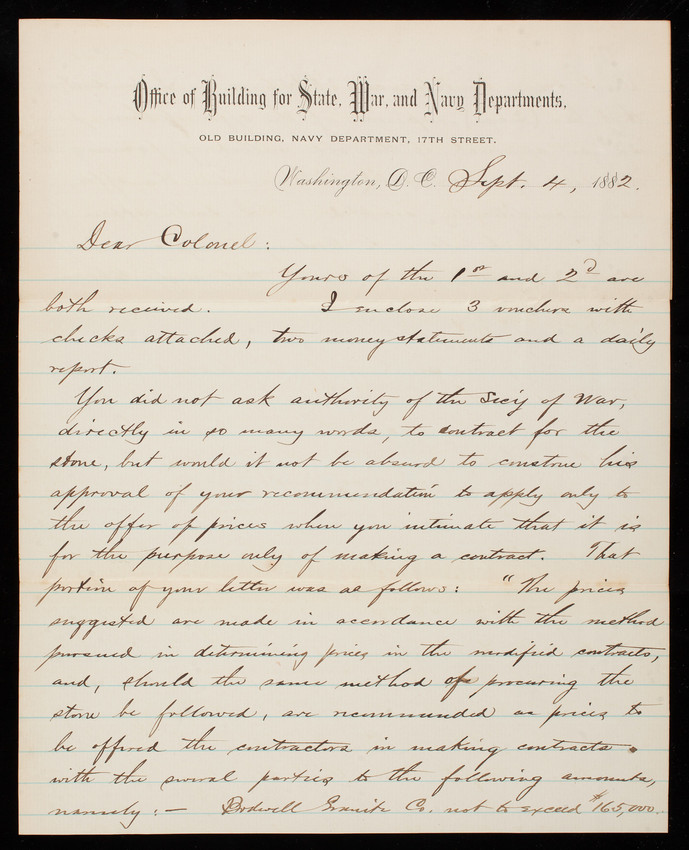 Office of Building for State, War, and Navy Departments.
OLD BUILDING, NAVY DEPARTMENT, 17TH STREET.
Washington, D. C. Sept. 4, 1882.
Dear Colonel:
Yours of the 1st and 2d are
both received. I enclose 3 vouchers with
checks attached, two money statements and a daily
report.
You did not ask authority of the Sec'y of War,
directly in so many words, to contract for the
stone, but would it not be absurd to construe his
approval of your recommendation to apply only to
the offer of prices when you intimate that it is
for the purpose only of making a contract. That
portion of your letter was as follows: "The prices
suggested are made in accordance with the method
pursued in determining prices in the modified contracts,
and, should the same method of procuring the
stone be followed, are recommended as prices to
be offered the contractors in making contracts
with the several parties to the following amounts,
namely: — Bodwell Granite Co. not to exceed $165,000.